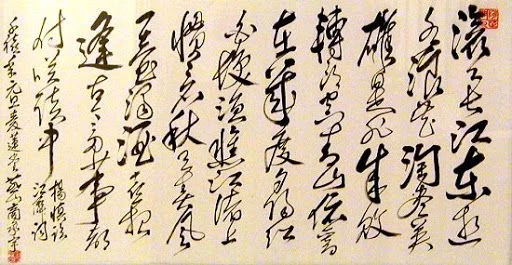 滚滚长江东逝
水浪花淘尽英
雄是非成败
转头空青山依旧
在几度夕阳红
白发渔樵江渚上
惯看秋月春风
一壶浊酒喜相
逢古今多少事都
付笑谈中
杨慎
词
元旦爱莲堂